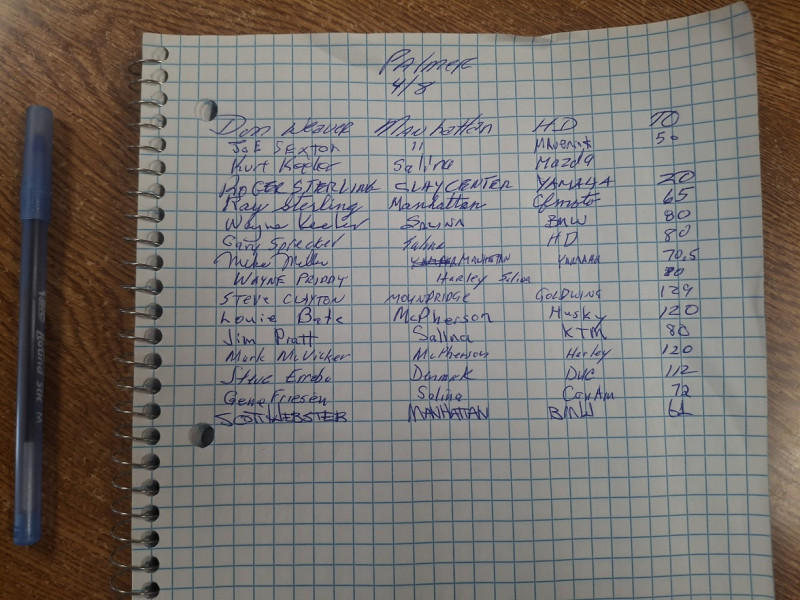 Palmer
4/8
Don Weaver Manhattan HD 70
Joe Sexton " Maverick 50
Kurt Keeler Salina Mazda
ROGER STERLING CLAY CENTER YAMAHA 20
Kay Sterling Manhattan Cfmoto 65
Wayne Keeler Salina BMW 80
Gary Sprecker Salina HD 80
Mike Miller MANHATTAN YAMAHA 70.5
WAYNE PRIDDY Harley Salina 80
STEVE CLAYTON MOUNDRIDGE GOLDWING 129
Louie Bate McPherson Husky 120
Jim Pratt Salina KTM 80
Mark McVicker McPherson Harley 120
Steve Duc 112
Gene Friesen Salina CanAm 72
SCOTT WEBSTER MANHATTAN BMW 61